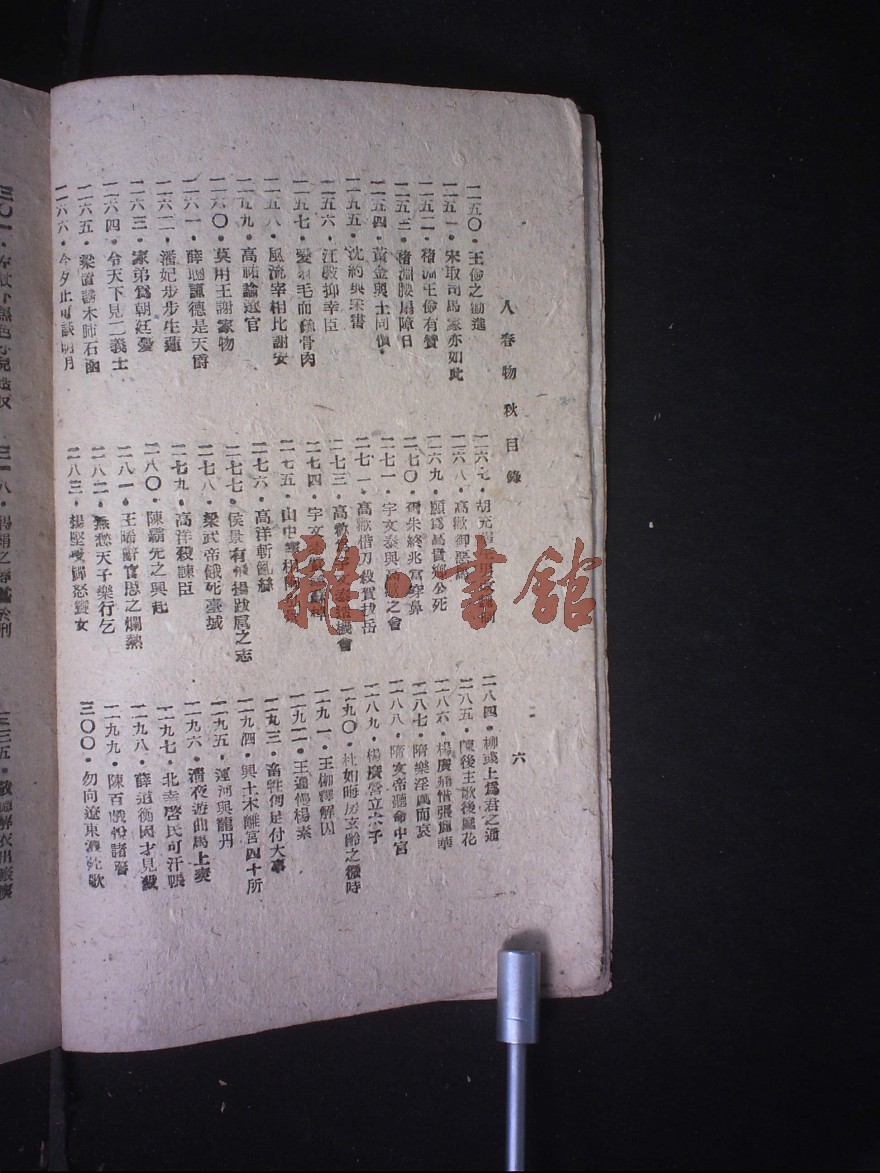 人春物秋目錄
六
二五〇・王儉之勸進
二五一・宋取司馬家亦如此
二五二・褚淵王儉有贊
二五三・褚淵腰扇障日
二五四・黃金與土同價・
二五五・沈約與宋書
二五六・江斆抑幸臣
二五七・愛羽毛而疏骨肉
二五八・風流宰相比謝安
二五九・高祐論選官
二六〇・莫用王謝家物
二六一・薛聰謙德是天爵
二六二・潘妃步步生蓮
二六三・家弟爲朝廷憂
二六四・令天下見二義士
二六五・梁置謗木肺石函
二六六・今夕止可談明月
二六七・胡充
二六八・高歡御惡馬
二六九・願爲高貴鄉公死
二七〇・爾朱終兆當穿鼻
二七一・宇文泰與之會
二七二・高歡借刀殺賀拔岳
二七三・高歡機會
二七四・宇文
二七五・山中宰相陶
二七六・高洋斬亂絲
二七七・侯景有飛揚跋扈之志
二七八・梁武帝餓死臺城
二七九・高洋殺諫臣
二八〇・陳霸先之興起
二八一・王晞辭官思之爛熟
二八二・無愁天子樂行乞
二八三・楊堅受禪怒竇女
二八四・柳彧上爲君之道
二八五・陳後主歌後庭花
二八六・楊廣痛惜張麗華
二八七・隋樂淫厲而哀
二八八・隋文帝聽命中宮
二八九・楊廣營立太子
二九〇・杜如晦房玄齡之微時
二九一・王伽釋解囚
二九二・王通傲楊素
二九三・畜牲何足付大事
二九四・興土木離宮四十所
二九五・運河與龍舟
二九六・清夜遊曲馬上奏
二九七・北幸啓民可汗帳
二九八・薛道衡因才見殺
二九九・陳百戲悅諸番
三〇〇・勿向遼東浪死歌
龍・書館